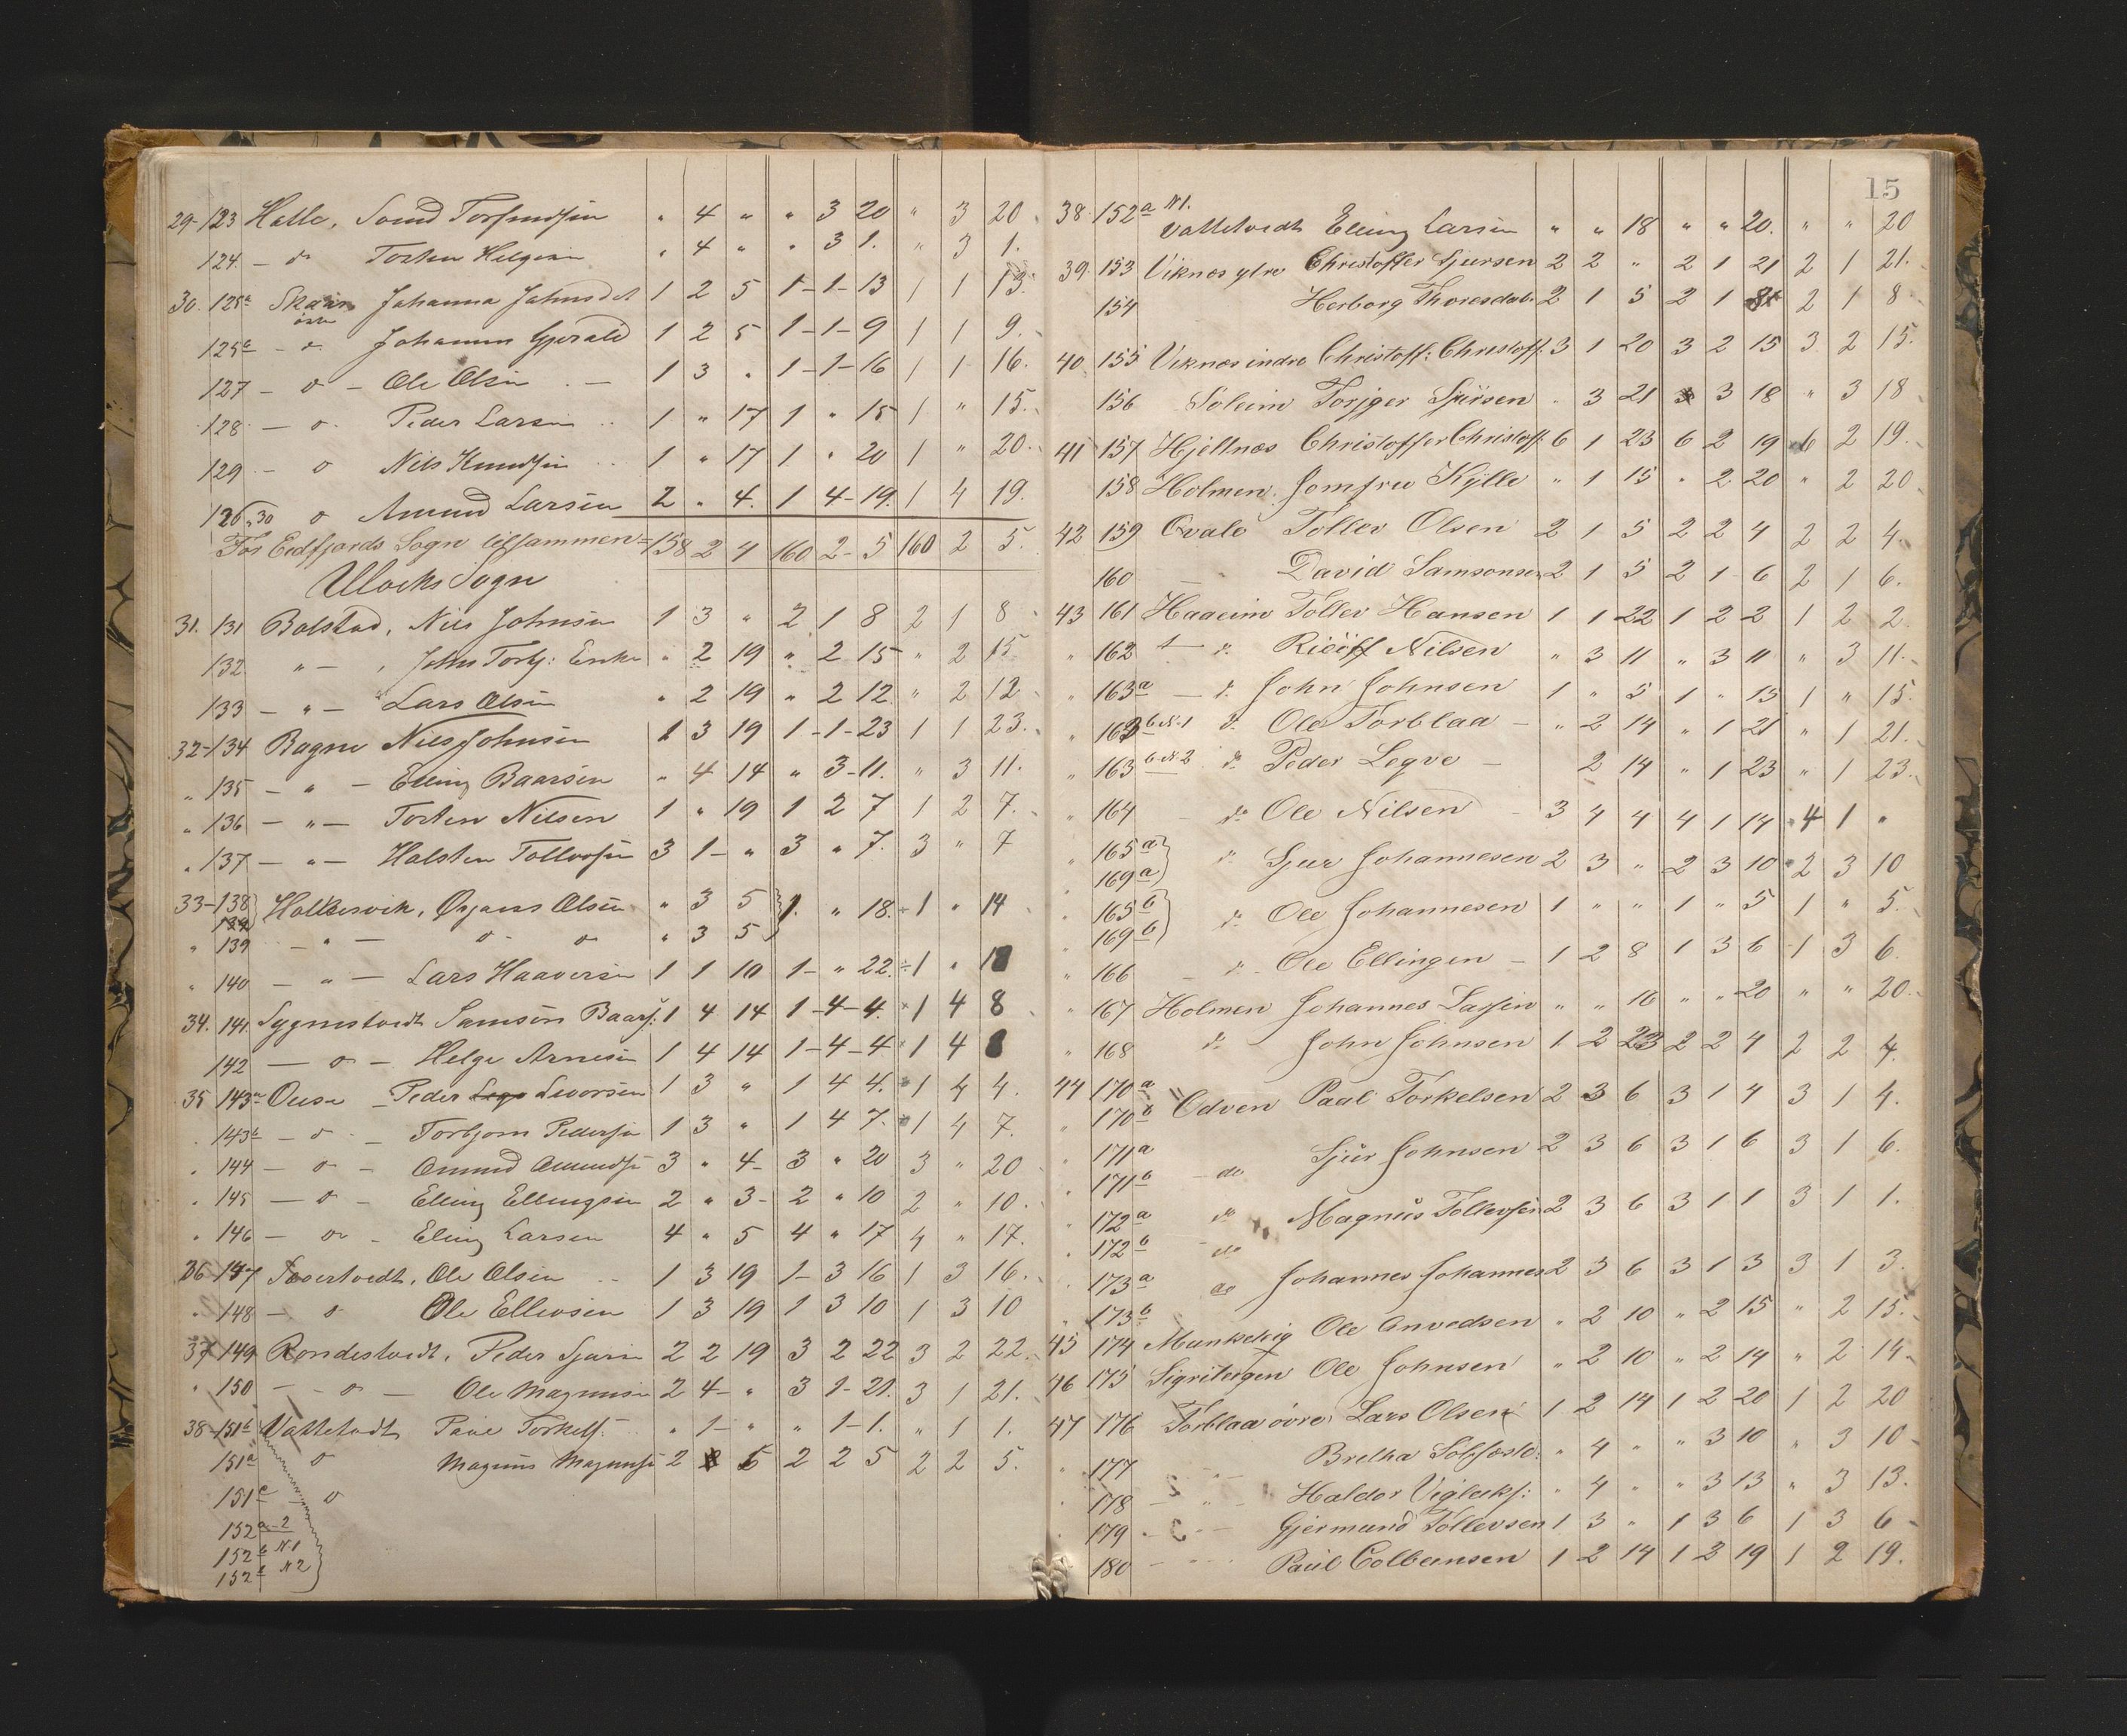 29-123 Halle, Somd Torfindsøn " 4 " " 3 20 " 3 20
124 - do Tosten Helgesen " 4 " " 3 1. " 3 1.
30. 125a Skaar østre Johanna Johnsdat 1 2 5 1-1-13 1 1 13.
125a - o Johannes Gjerald 1 2 5 1-1-9 1 1 9.
127 - o - Ole Olsen 1 3 " 1-1-16 1 1 16.
128 - o Peder Larsen 1 " 17 1 " 15 1 " 15.
129 - o Nils Knudsen 1 " 17 1 " 20 1 " 20.
126, 30 o Amund Larsen 2 " 4. 1 4-19. 1 4 19.
For Eedfjords Sogn tilsammen = 158 2 4 160 2-5 160 2 5.
Ulviks Sogn
31. 131 Bolstad, Nils Johnsen 1 3 " 2 1 8 2 1 8
132 " - , John Torbj: Enke " 2 19 " 2 15 " 2 15
133 - " - Lars Olsen " 2 19 " 2 12 " 2 12
32-134 Bagne Nils Johnsen 1 3 19 1-1-23 1 1 23.
" 135 - " - Elling Baarsen " 4 14 " 3-11. " 3 11.
" 136 - " - Tosten Nilsen 1 " 19 1 2 7 1 2 7.
" 137 - " - Halsten Tollevsen 3 1- " 3 " 7. 3 " 7
33-138 139 Hallesvik, Ørjans Olsen " 3 5 1. " 18. 1 " 14
" 139 - " - o o " 3 5
" 140 - " - Lars Haaversen 1 1 10 1- " 22. 1 " 18
34. 141. Lygnestvedt Samson Baars: 1 4 14 1-4-4. 1 4 8
142 - o - Helge Arnesen 1 4 14 1-4-4 1 4 8
35 143a Ouse - Peder Levorsen 1 3 " 1 4 4. 1 4 4.
143b - o - Torbjorn Pedersen 1 3 " 1 4 7. 1 4 7.
" 144 - o - Omund Amundsen 3 " 4- 3 " 20 3 " 20
" 145 - o - Elling Ellingsen 2 " 3- 2 " 10 2 " 10.
" 146 - o - Elling Larsen 4 " 5 4 " 17 4 " 17.
36-147 Tveitvedt, Ole Olsen 1 3 19 1-3 16 1 3 16.
" 148 - o Ole Ellevsen 1 3 19 1 3 10 1 3 10
37 149 Rondestvedt, Peder Sjursen 2 2 19 3 2 22 3 2 22.
" 150 - o - Ole Magnusen 2 4- " 3 1-21. 3 1 21.
38-151b Vattetvedt Paul Torkels: " 1- " " 1-1. " 1 1.
151a o Magnus Magnusen 2 5 2 2 5 2 2 5.
151c - o
152a-2
152b N1
152b N2
15
38. 152a N1. Vattetvedt Elling Larsen " " 18 " " 20. " " 20
39. 153 Viknæs ytre Christoffer Sjursen 2 2 " 2 1 21 2 1 21.
154 Herborg Thoresdat. 2 1 5 2 1 8 2 1 8
40 155 Viknæs indre Christoff: Christoff. 3 1 20 3 2 15 3 2 15.
156 Soleim Torjger Sjursen " 3 21 3 18 " 3 18
41 157 Hjeltnæs Christoffer Christoff: 6 1 23 6 2 19 6 2 19.
158 Holmen Jomfru Kylle " 1 15 " 2 20 " 2 20
42 159 Qvale Tollev Olsen 2 1 5 2 2 4 2 2 4.
160 - David Samsonsen 2 1 5 2 1 6 2 1 6.
43 161 Haaeim Tollev Hansen 1 1 22 1 2 2 1 2 2
" 162 - do Nilsen " 3 11 " 3 11 " 3 11.
" 163a - do John Johnsen 1 " 5 1 " 15 1 " 15.
" 163b N.1 do Ole Torblaa - " 2 14 " 1 21 " 1 21.
" 163b N.2 do Peder Legve - 2 14 " 1 23 " 1 23.
" 164 - do Ole Nilsen - 3 4 4 4 1 14 4 1 "
" 165a 169a do Sjur Johannesen 2 3 " 2 3 10 2 3 10
" 165b 169b do Ole Johannesen 1 " " 1 " 5 1 " 5.
" 166 - do - Ole Ellingen - 1 2 8 1 3 6 1 3 6.
" 167 Holmen Johannes Larsen " " 16 " " 20 " " 20.
" 168 do John Johnsen 1 2 23 2 2 4 2 2 4.
44 170a 170b Odven Paal Torkelsen 2 3 6 3 1 4 3 1 4.
" 171a 171b - do Sjur Johnsen 2 3 6 3 1 6 3 1 6.
" 172a do Magnus Tollevsen 2 3 6 3 1 1 3 1 1.
" 172b do
" 173a do Johannes Johannes 2 3 6 3 1 3 3 1 3.
" 173b
45 174 Munkekvig Ole Anvedsen " 2 10 " 2 15 " 2 15.
46 175 Sigritergen Ole Johnsen " 2 10 " 2 14 " 2 14.
47 176 Torblaa øvre Lars Olsen 1 2 14 1 2 20 1 2 20
" 177 Bretha " 4 " " 3 10 " 3 10
" 178 - " Haldor Vigleiks: " 4 " " 3 13 " 3 13.
" 179 - " - Gjermund Tollevsen 1 3 " 1 3 6 1 3 6
180 - Paul Colbeinsen 1 2 14 1 2 19 1 2 19.